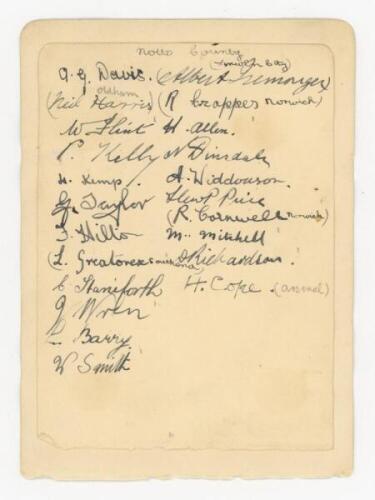 Notts County
A. G. Davis. Albert Iremonger
(Neil Harris) Oldham (R Crapper Norwich)
W Flint H. Allen.
P. Kelly N Dinsdale
H. Kemp. A. Widdowson.
G. Taylor Llew P Price
(R. Cornwell Norwich)
F. Hilton M. Mitchell
(L. Greatorex) D Richardson.
C Staniforth H. Cope (Arsenal)
J Wren
L. Barry
W Smith